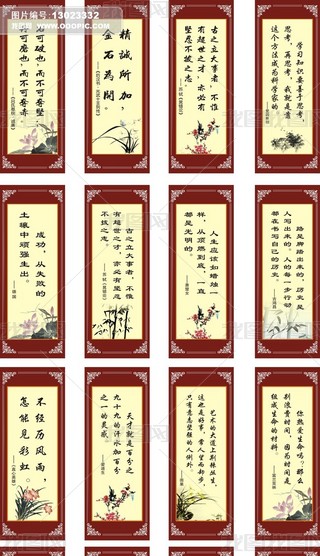 图品汇 编号：13023332
WWW.OOOPIC.COM
可破也，而不可夺坚；
可磨也，而不可夺赤。
精誠所加，
金石為開
古之立大事者，不惟
有超世之才，亦必有
坚忍不拔之志。
——苏轼《晁错论》
学习知识要善于思考，
思考，再思考，我就是靠
这个方法成为科学家的。
——爱因斯坦
成功，从失败的
土壤中顽强生出。
古之立大事者，不惟
有超世之才，亦必有坚忍
不拔之志。
——苏轼《晁错论》
人生应该如蜡烛一
样，从顶燃到底，一直
都是光明的。
——萧楚女
路是脚踏出来的，历史是
人写出来的。人的每一步行动
都在书写自己的历史。
——吉鸿昌
不经历风雨，
怎能见彩虹。
——《真心英雄》
天才就是百分之
九十九的汗水加百分
之一的灵感。
——爱迪生
艺术的大道上荆棘丛生，
这也是好事，常人望而却步，
只有意志坚强的人例外。
——雨果
你热爱生命吗？那么
别浪费时间，因为时间是
组成生命的材料。
——富兰克林